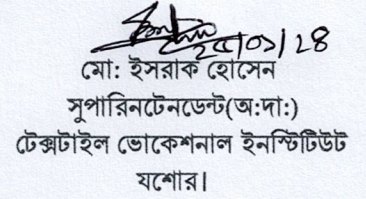 ২৫/০১/২৪
মো: ইসরাক হোসেন
সুপারিনটেনডেন্ট(অ:দা:)
টেক্সটাইল ভোকেশনাল ইনস্টিটিউট
যশোর।